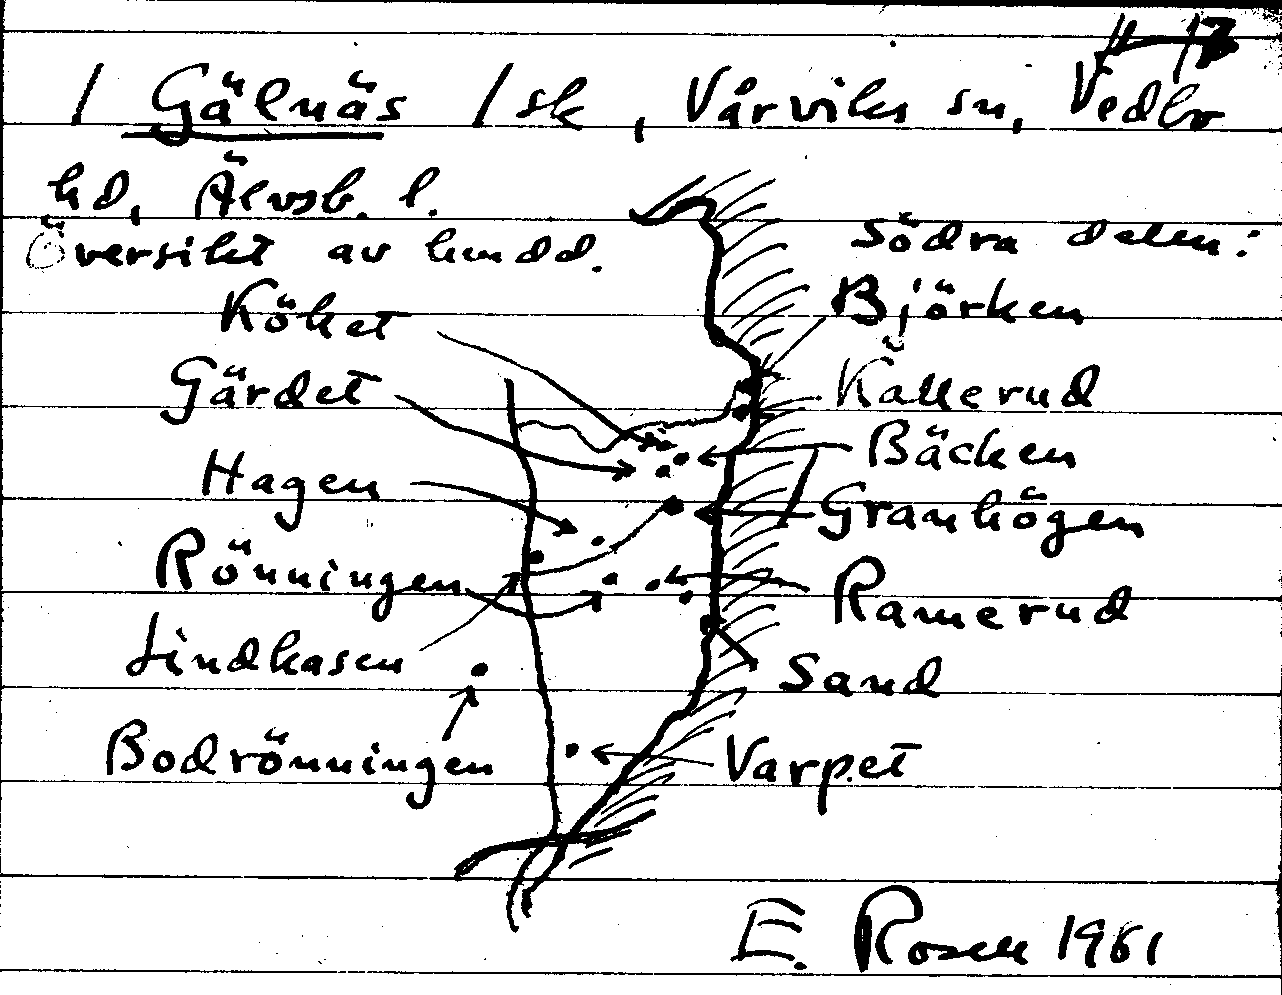 / Gälnäs /sk, Vårviks sn, Vedbo
hd, Älvsb. l.
Översikt av hundd.
Södra delen:
Köket
Björken
Gärdet
Kallerud
Bäcken
Hagen
Granhögen
Rönningen
Ramerud
Lindkasen
Sand
Bodrönningen
Varpet
E. Rosell 1961